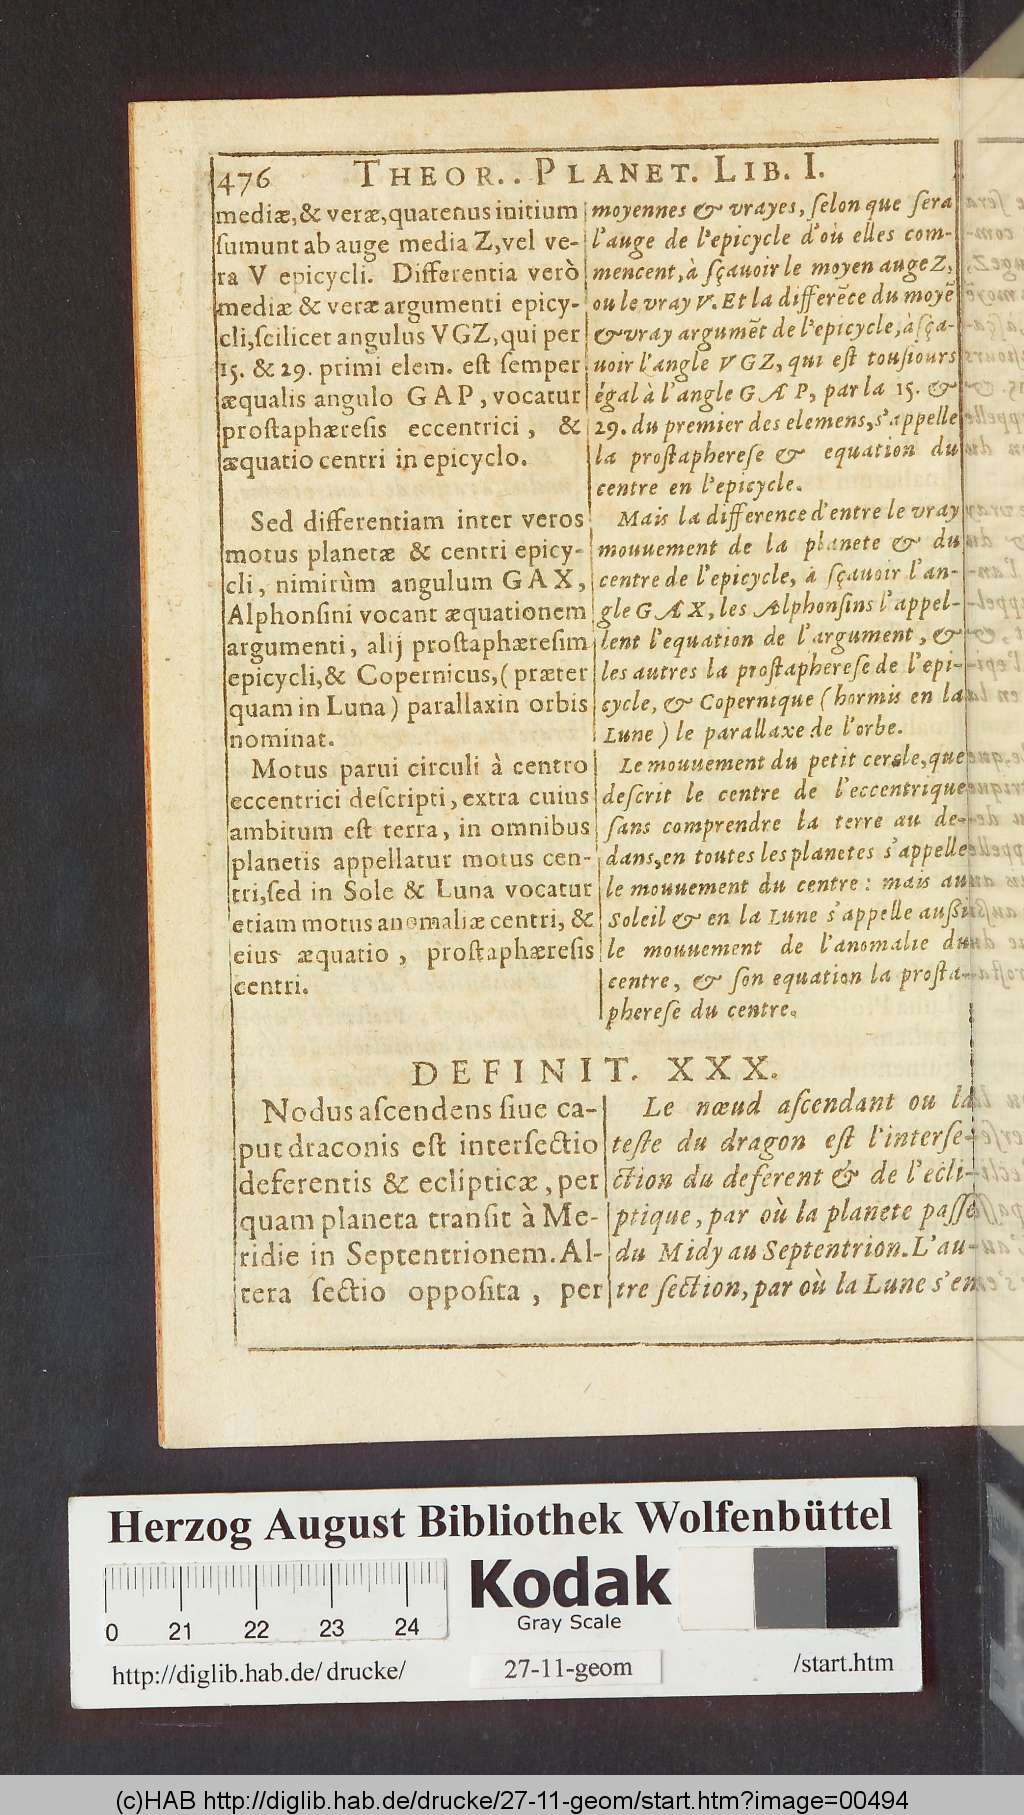 476 THEOR.. PLANET. LIB. I.
mediæ, & veræ, quatenus initium
ſumunt ab auge media Z, vel ve-
ra V epicycli. Differentia verò
mediæ & veræ argumenti epicy-
cli, ſcilicet angulus VGZ, qui per
15. & 29. primi elem. eſt ſemper
æqualis angulo GAP, vocatur
proſtaphæreſis eccentrici, &
æquatio centri in epicyclo.
Sed differentiam inter veros
motus planetæ & centri epicy-
cli, nimirùm angulum GAX,
Alphonſini vocant æquationem
argumenti, alij proſtaphæreſim
epicycli, & Copernicus, (præter
quam in Luna) parallaxin orbis
nominat.
Motus parui circuli à centro
eccentrici deſcripti, extra cuius
ambitum eſt terra, in omnibus
planetis appellatur motus cen-
tri, ſed in Sole & Luna vocatur
etiam motus anomaliæ centri, &
eius æquatio, proſtaphæreſis
centri.
moyennes & vrayes, ſelon que ſera
l'auge de l'epicycle d'où elles com-
mencent, à ſçauoir le moyen auge Z,
ou le vray V. Et la differēce du moyē
& vray argumēt de l'epicycle, à ſça-
uoir l'angle VGZ, qui eſt touſiours
égal à l'angle GAP, par la 15. &
29. du premier des elemens, s'appelle
la proſtaphereſe & equation du
centre en l'epicycle.
Mais la difference d'entre le vray
mouuement de la planete & du
centre de l'epicycle, à ſçauoir l'an-
gle GAX, les Alphonſins l'appel-
lent l'equation de l'argument, &
les autres la proſtaphereſe de l'epi-
cycle, & Copernique (hormis en la
Lune) le parallaxe de l'orbe.
Le mouuement du petit cercle, que
deſcrit le centre de l'eccentrique
ſans comprendre la terre au de-
dans, en toutes les planetes s'appelle
le mouuement du centre: mais au
Soleil & en la Lune s'appelle außi
le mouuement de l'anomalie du
centre, & ſon equation la proſta-
phereſe du centre.
DEFINIT. XXX.
Nodus aſcendens ſiue ca-
put draconis eſt interſectio
deferentis & eclipticæ, per
quam planeta tranſit à Me-
ridie in Septentrionem. Al-
tera ſectio oppoſita, per
Le nœud aſcendant ou la
teſte du dragon eſt l'interſe-
ction du deferent & de l'ecli-
ptique, par où la planete paſſe
du Midy au Septentrion. L'au-
tre ſection, par où la Lune s'en
Herzog August Bibliothek Wolfenbüttel
0 21 22 23 24
Kodak
Gray Scale
http://diglib.hab.de/drucke/ 27-11-geom /start.htm
(c)HAB http://diglib.hab.de/drucke/27-11-geom/start.htm?image=00494